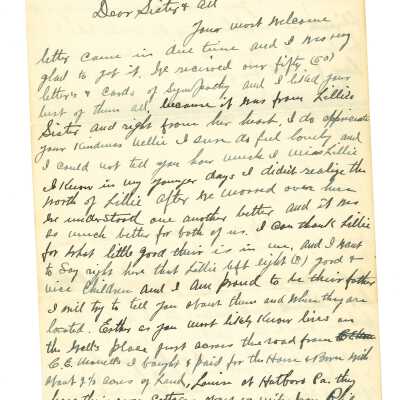 Dear Sister & All
Your most Welcome
letter came in due time and I was very
glad to get it. We recived over fifty (50)
letters & cards of Sympathy and I liked your
best of them all, because it was from Lillies
Sister and right from her heart. I do appreciate
your Kindness Nellie I sure do feel lonely and
I could not tell you how much I miss Lillie
I Know in my younger days I didn't realize the
Worth of Lillie after We mooved over here
We understood one another better and it was
so much better for both of us. I can thank Lillie
for What little good their is in me, and I Want
to Say right here that Lillie left eight (8) good &
nice Children and I am proud to be their father
I will try to tell you about them and Where they are
located. Esther as you most likely Know lives on
the place just across the road from
C.E. I bought & paid for the Home & Barn With
about 2½ acres of Land, at Hatboro Pa. they